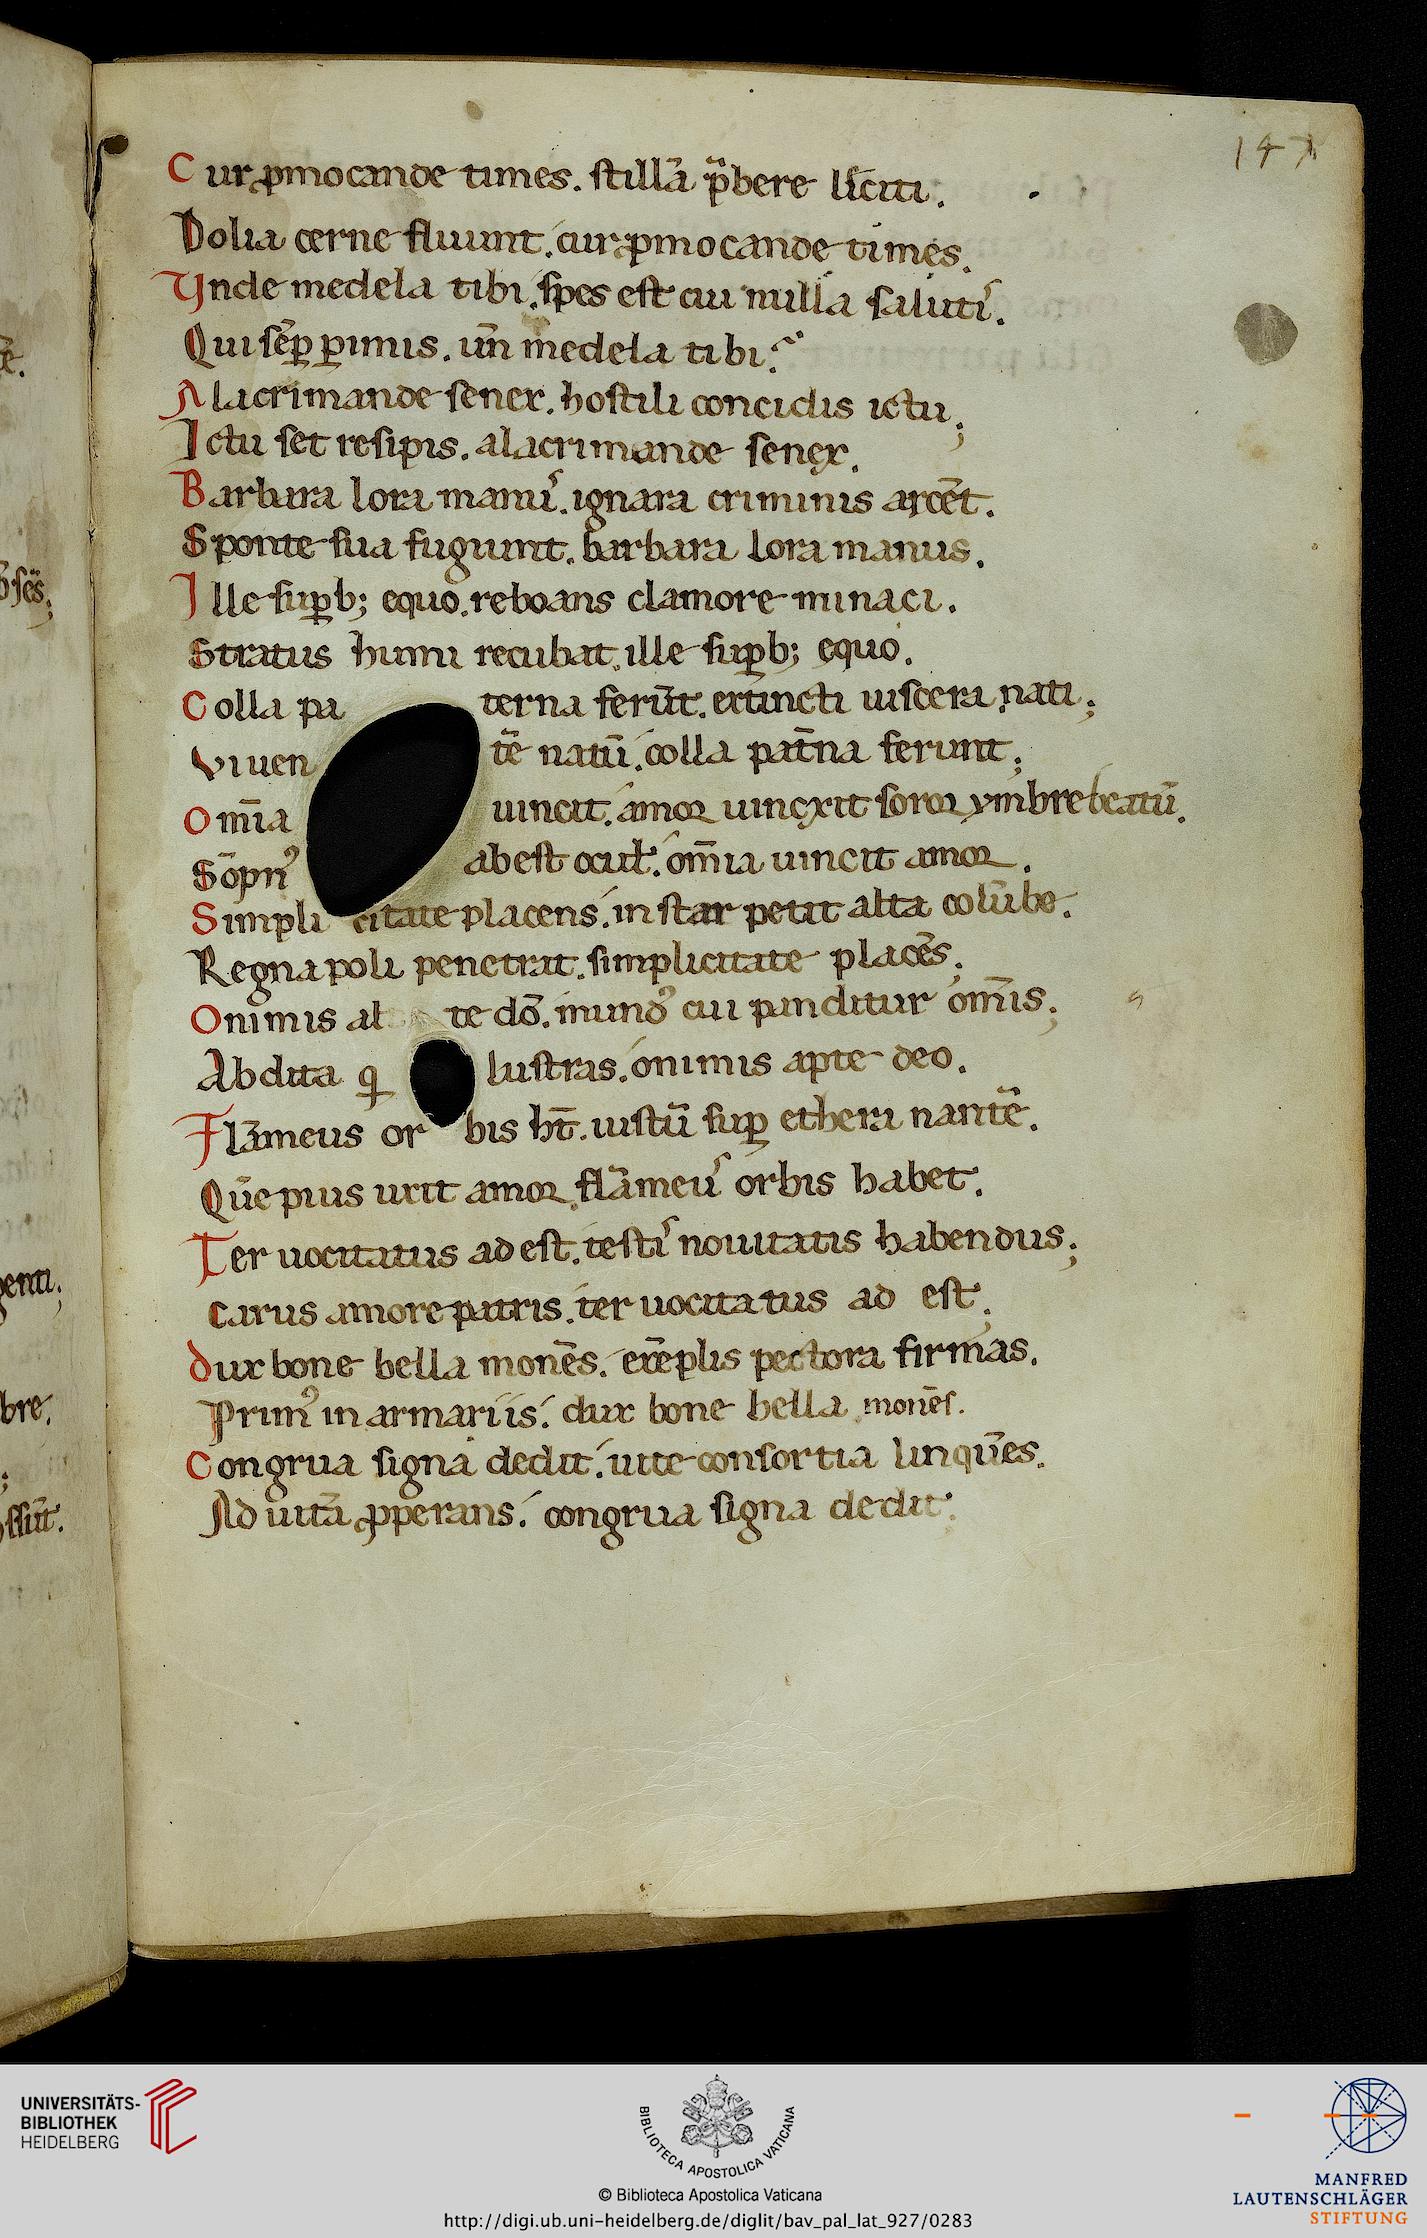 147
Cur ꝓmocande times. stillā p̄bere liciti.
Dolia cerne fluunt. cur ꝓmocande times.
Vnde medela tibi. spes est cui nulla salutis.
Qui sēꝑ ꝑimis. uñ medela tibi.
Alacrimande senex. hostili concidis ictu;
Ictu set resipis. alacrimande senex.
Barbara lora manus. ignara criminis arcēt.
Sponte sua fugiunt. barbara lora manus.
Ille suꝑb; equo. reboans clamore minaci.
Stratus humi recubat. ille suꝑb; equo.
Colla pa terna ferūt. extincti uiscera nati;
Viuen tē natū. colla pat̄na ferunt;
Om̄ia uincit. amor uincxit soror ymbre beatū.
Sōpn᾽ abest ocul̄. om̄ia uincit amor.
Simpli citate placens. instar petit alta colūbe.
Regna poli penetrat. simplicitate placēs.
Onimis a te dō. mund᾽ cui panditur om̄is;
Abdita q lustras. onimis apte deo.
Flāmeus or bis ht̄. uistū suꝑ ethera nantē.
Quē pius urit amor. flāmeus orbis habet.
Ter uocitatus adest. testis nouitatis habendus;
Carus amore patris. ter uocitatus ad est.
Dux bone bella monēs. exēplis pectora firmas.
Prim᾽ in armariis. dux bone bella monēs.
Congrua signa dedit. uite consortia linquēs.
Ad uitā ꝓperans. congrua signa dedit.
UNIVERSITÄTS-
BIBLIOTHEK
HEIDELBERG
BIBLIOTECA APOSTOLICA VATICANA
© Biblioteca Apostolica Vaticana
http://digi.ub.uni-heidelberg.de/diglit/bav_pal_lat_927/0283
MANFRED
LAUTENSCHLÄGER
STIFTUNG